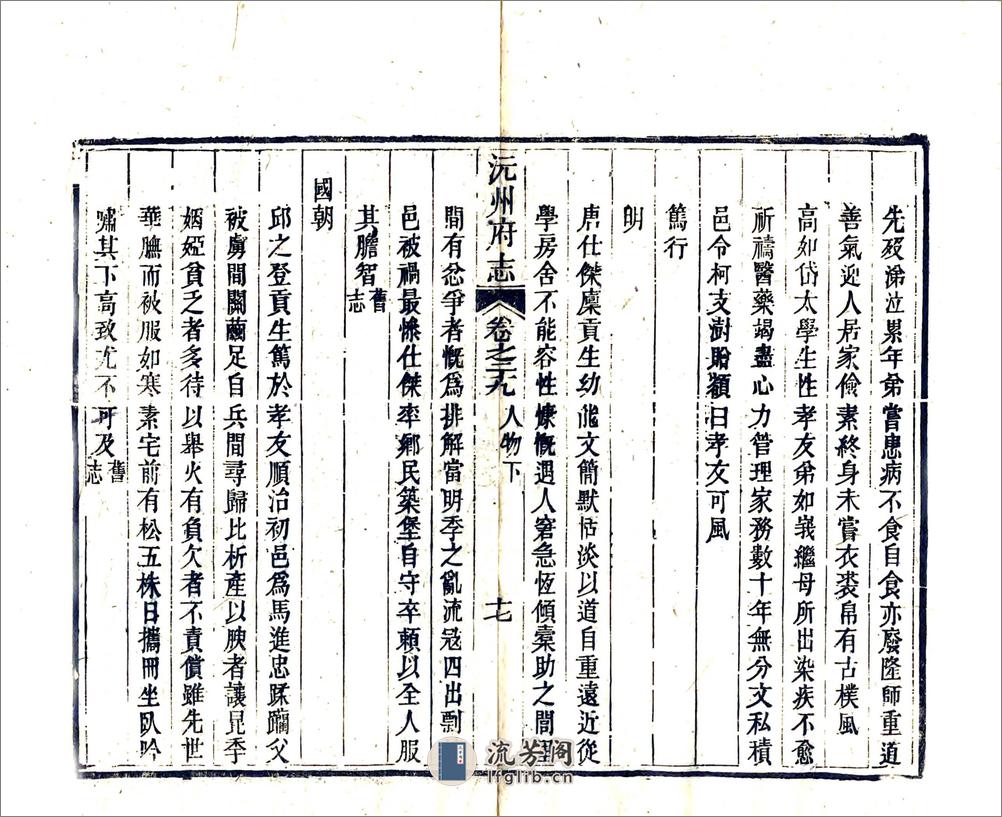 先歿涕泣累年弟嘗患病不食自食亦廢隆師重道
善氣迎人居家儉素終身未嘗衣裘帛有古樸風
高如岱太學生性孝友弟如峩繼母所出染疾不愈
祈禱醫藥竭盡心力管理家務數十年無分文私積
邑令柯支澍贈額曰孝友可風
篤行
明
唐仕傑廩貢生幼能文簡默恬淡以道自重遠近從
學房舍不能容性慷慨遇人窘急恆傾橐助之閭里
間有忿爭者慨為排解當明季之亂流寇四出剽
邑被禍最慘仕傑率鄉民築堡自守卒賴以全人服
其膽智舊志
國朝
邱之登貢生篤於孝友順治初邑為馬進忠蹂躪父
被虜間關繭足自兵間尋歸比析產以腴者讓昆季
姻婭貧乏者多待以舉火有負欠者不責償雖先世
華膴而被服如寒素宅前有松五株日攜冊坐臥吟
嘯其下高致尤不可及舊志
沅州府志 卷之二九 人物下 十七
流芳阁
lfglib.cn